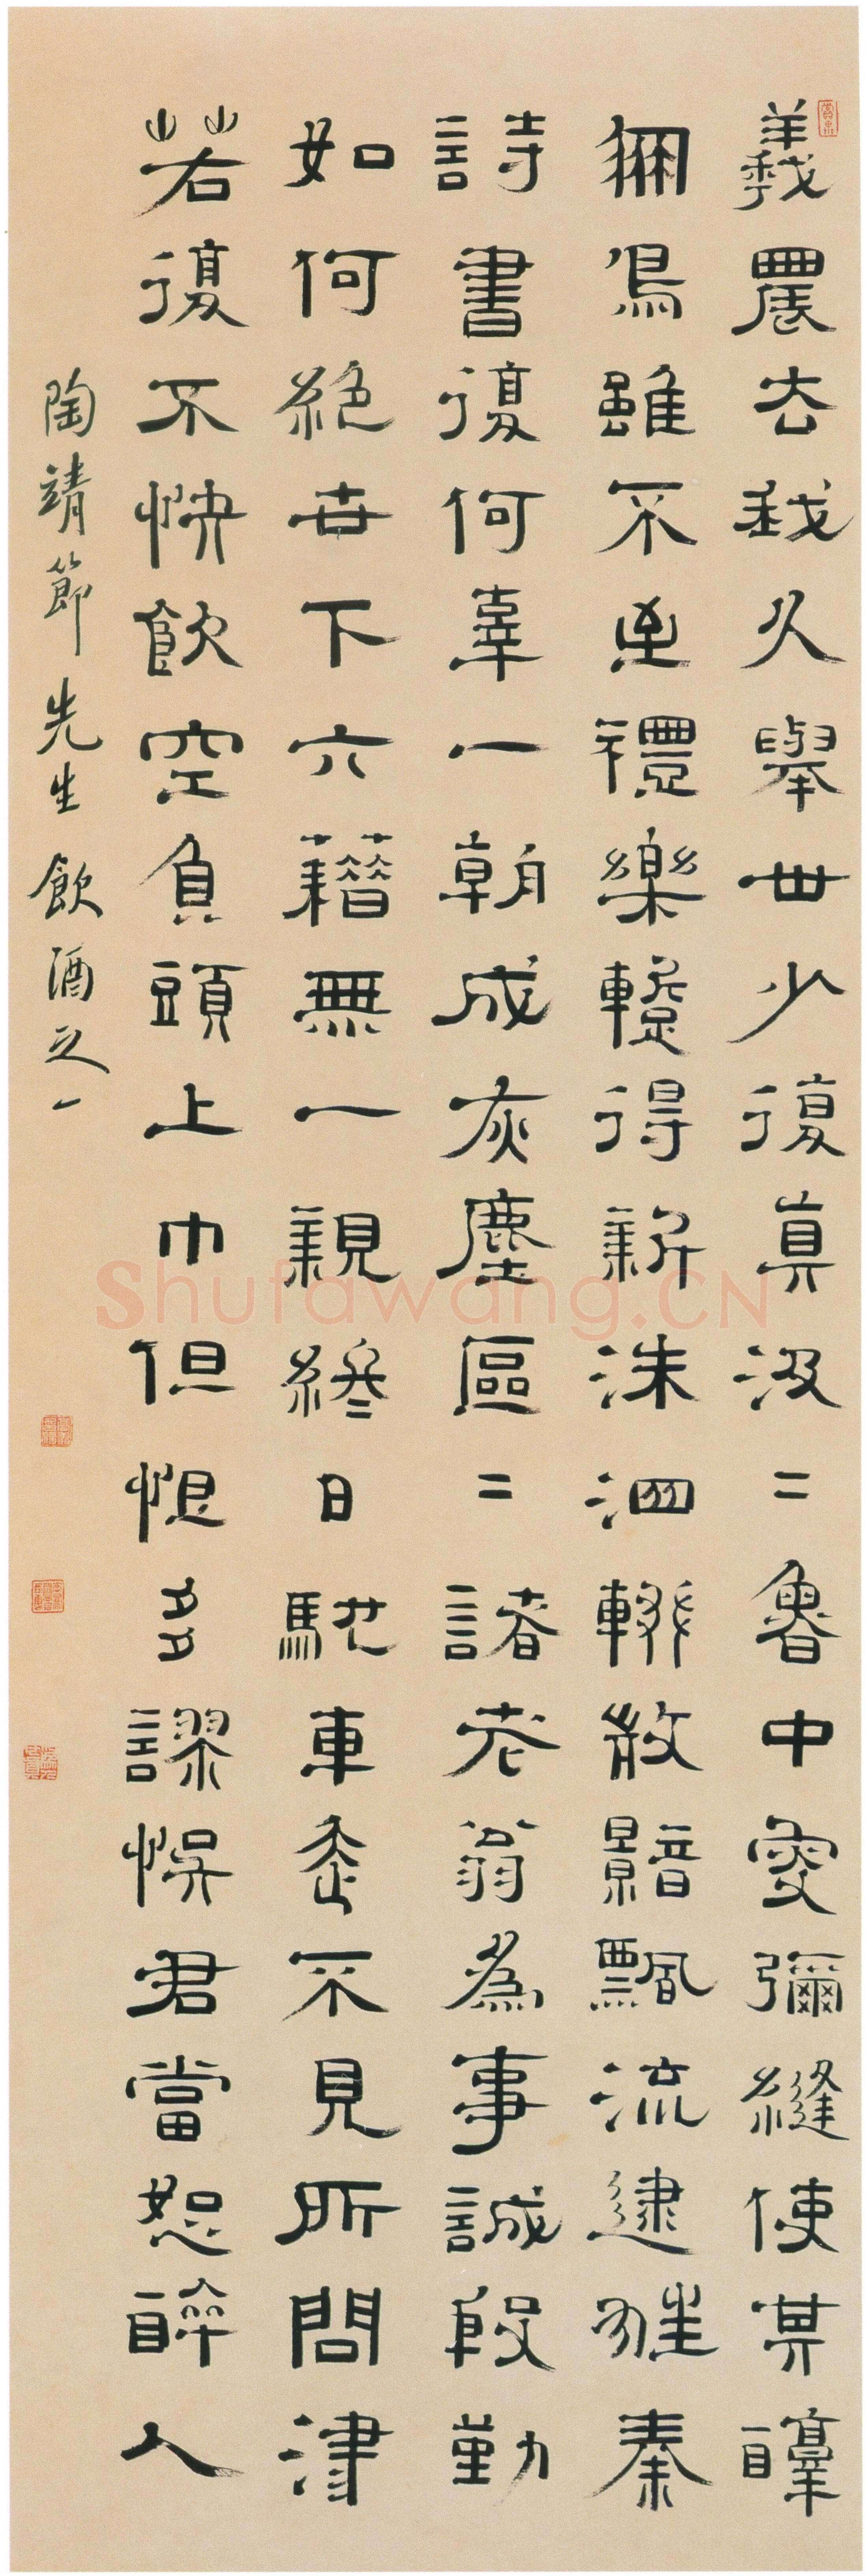 羲農去我久舉世少復真汲=魯中叟彌縫使其醇
鳳鳥雖不至禮樂暫得新洙泗輟微響飄流逮狂秦
詩書復何辜一朝成灰塵區=諸老翁為事誠殷勤
如何絕世下六藉無一親終日馳車走不見所問津
若復不快飲空負頭上巾但恨多謬悮君當恕醉人
陶靖節先生飲酒之一
Shufawang.CN